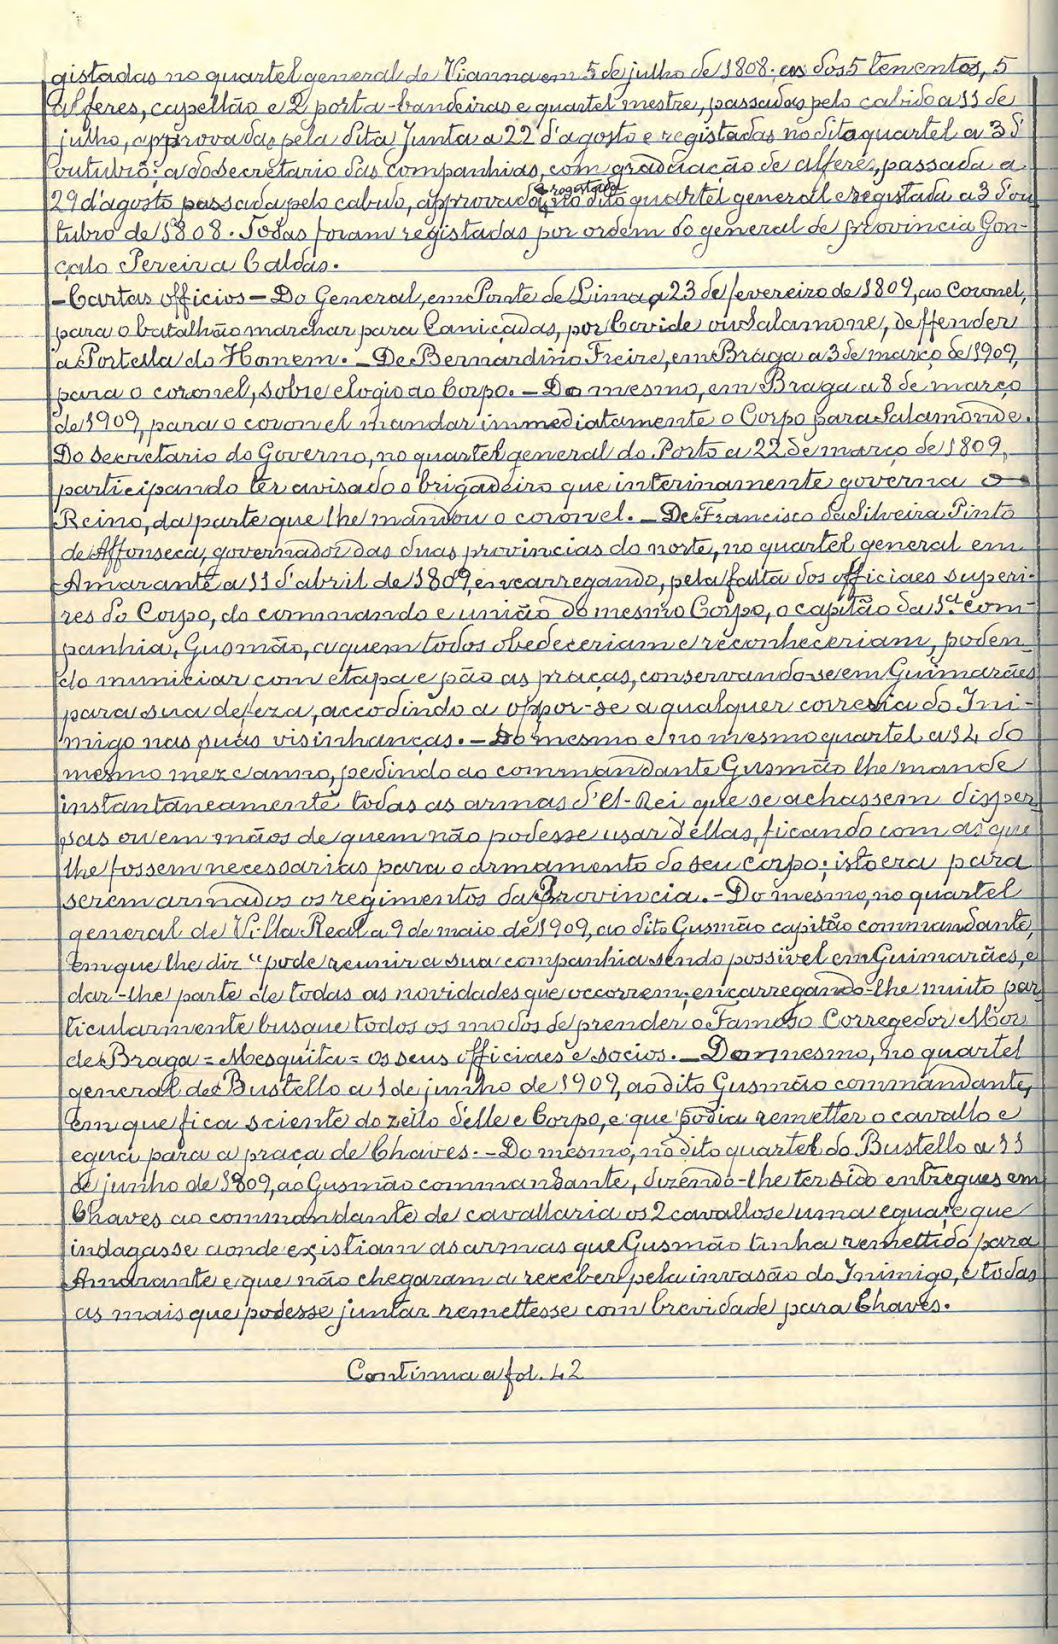 gistadas no quartel general de Vianna em 5 de julho de 1808; as dos 5 tenentes, 5
alferes, capellão e 2 porta-bandeiras e quartel mestre, passadas pelo cabido a 11 de
julho, approvadas pela dita Junta a 22 d'agosto e registadas no dito quartel a 3 d'
outubro; a do secretario das companhias, com graduação de alferes, passada a
29 d'agosto passada pelo cabido, approvada e registada no dito quartel general e registada a 3 d'ou
tubro de 1808. Todas foram registadas por ordem do general de provincia Gon-
çalo Pereira Caldas.
- Cartas officios - Do General, em Ponte de Lima a 23 de fevereiro de 1809, ao Coronel,
para o batalhão marchar para Caniçadas, por Covide ou Salamone, deffender
a Portella do Homem. - De Bernardino Freire, em Braga a 3 de março de 1909,
para o coronel, sobre elogio ao Corpo. - Do mesmo, em Braga a 8 de março
de 1909, para o coronel mandar immediatamente o Corpo para Salamonde.
Do secretario do Governo, no quartel general do Porto a 22 de março de 1809,
participando ter avisado o brigadeiro que interinamente governa o
Reino, da parte que lhe mandou o coronel. - De Francisco da Silveira Pinto
de Affonseca, governador das duas provincias do norte, no quartel general em
Amarante a 11 d'abril de 1809, encarregando, pela falta dos officiaes superi-
res do Corpo, do commando e união do mesmo Corpo, o capitão da 1ª com-
panhia, Gusmão, a quem todos obedeceriam e reconheceriam, poden_
do municiar com etapa e pão as praças, conservando-se em Guimarães
para sua defeza, accodindo a oppor-se a qualquer correria do Ini-
migo nas suas visinhanças. - Do mesmo e no mesmo quartel a 14 do
mesmo mez e anno, pedindo ao commandante Gusmão lhe mande
instantaneamente todas as armas d'el-Rei que se achassem disper
sas ou em mãos de quem não podesse usar d'ellas, ficando com as que
lhe fossem necessarias para o armamento do seu corpo; isto era para
serem armados os regimentos da Provincia. - Do mesmo, no quartel
general de Villa Real a 9 de maio de 1909, ao dito Gusmão capitão commandante,
em que lhe diz "pode reunir a sua companhia sendo possivel em Guimarães, e
dar-lhe parte de todas as novidades que occorrem, encarregando-lhe muito par
ticularmente busque todos os modos de prender o Famoso Corregedor Mor
de Braga = Mesquita = os seus officiaes e socios. - Do mesmo, no quartel
general de Bustello a 1 de junho de 1909, ao dito Gusmão commandante,
em que fica sciente do zello d'elle e Corpo, e que podia remetter o cavallo e
egua para a praça de Chaves. - Do mesmo, no dito quartel do Bustello a 11
de junho de 1809, ao Gusmão commandante, dizendo-lhe ter sido entregues em
Chaves ao commandante de cavallaria os 2 cavallos e uma egua, e que
indagasse aonde existiam as armas que Gusmão tinha remettido para
Amarante e que não chegaram a receber pela invasão do Inimigo, e todas
as mais que podesse juntar remettesse com brevidade para Chaves.
Continua a fol. 42